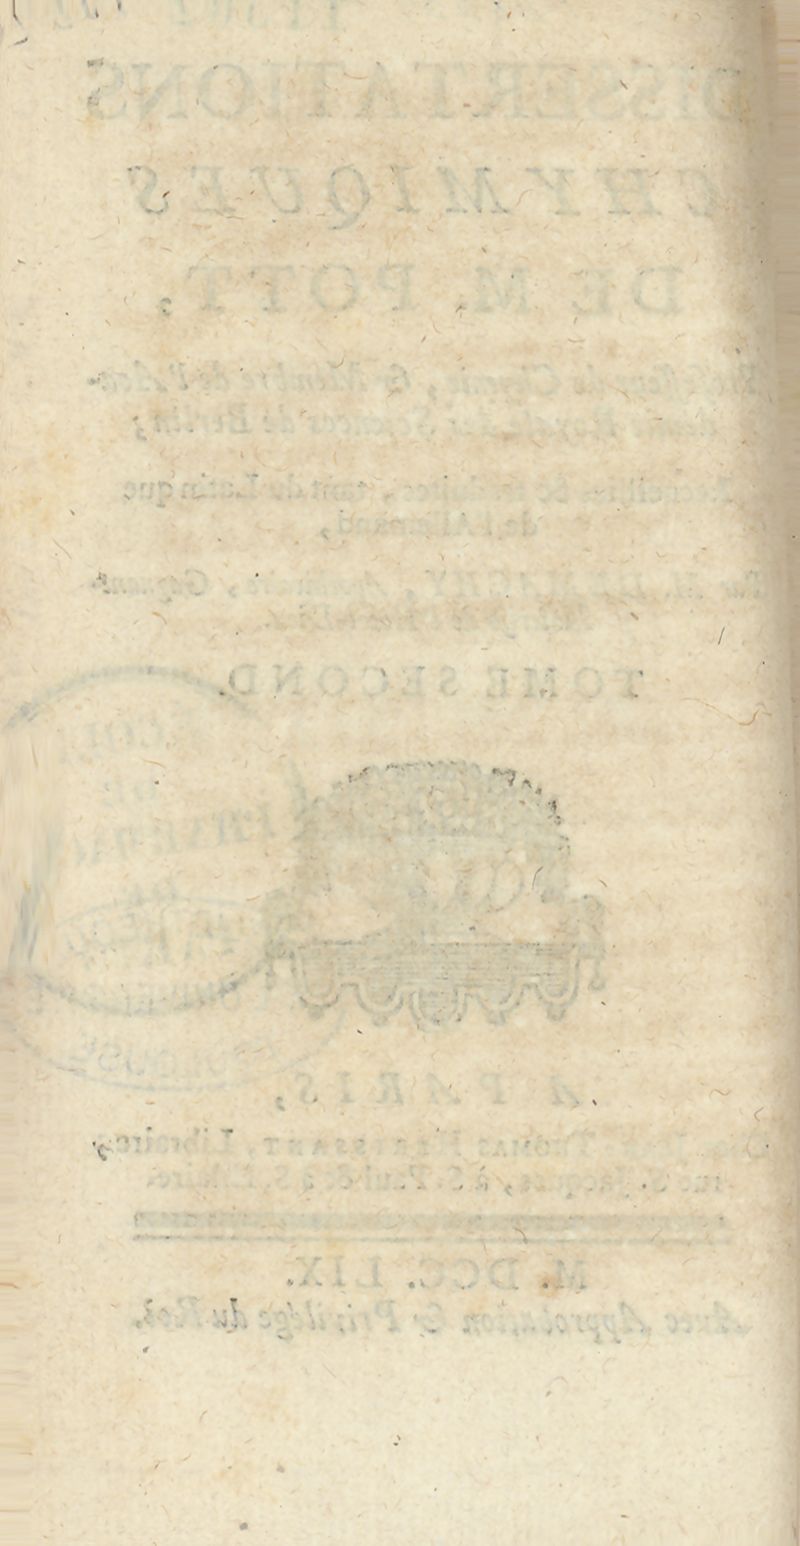 DISSERTATIONS
CHYMIQUES
DE M. POTT,
Professeur de Chymie, & Membre de l'Aca-
démie Royale des Sciences de Berlin;
Recueillies & traduites, tant du Latin que
de l'Allemand,
Par M. DEMACHY, Apothicaire, Gagnant-
TOME SECOND.
A PARIS,
Chez JEAN-THOMAS HERISSANT, Libraire,
rue S. Jacques, à S. Paul & à S. Hilaire.
M. DCC. LIX.
Avec Approbation & Privilége du Roi.